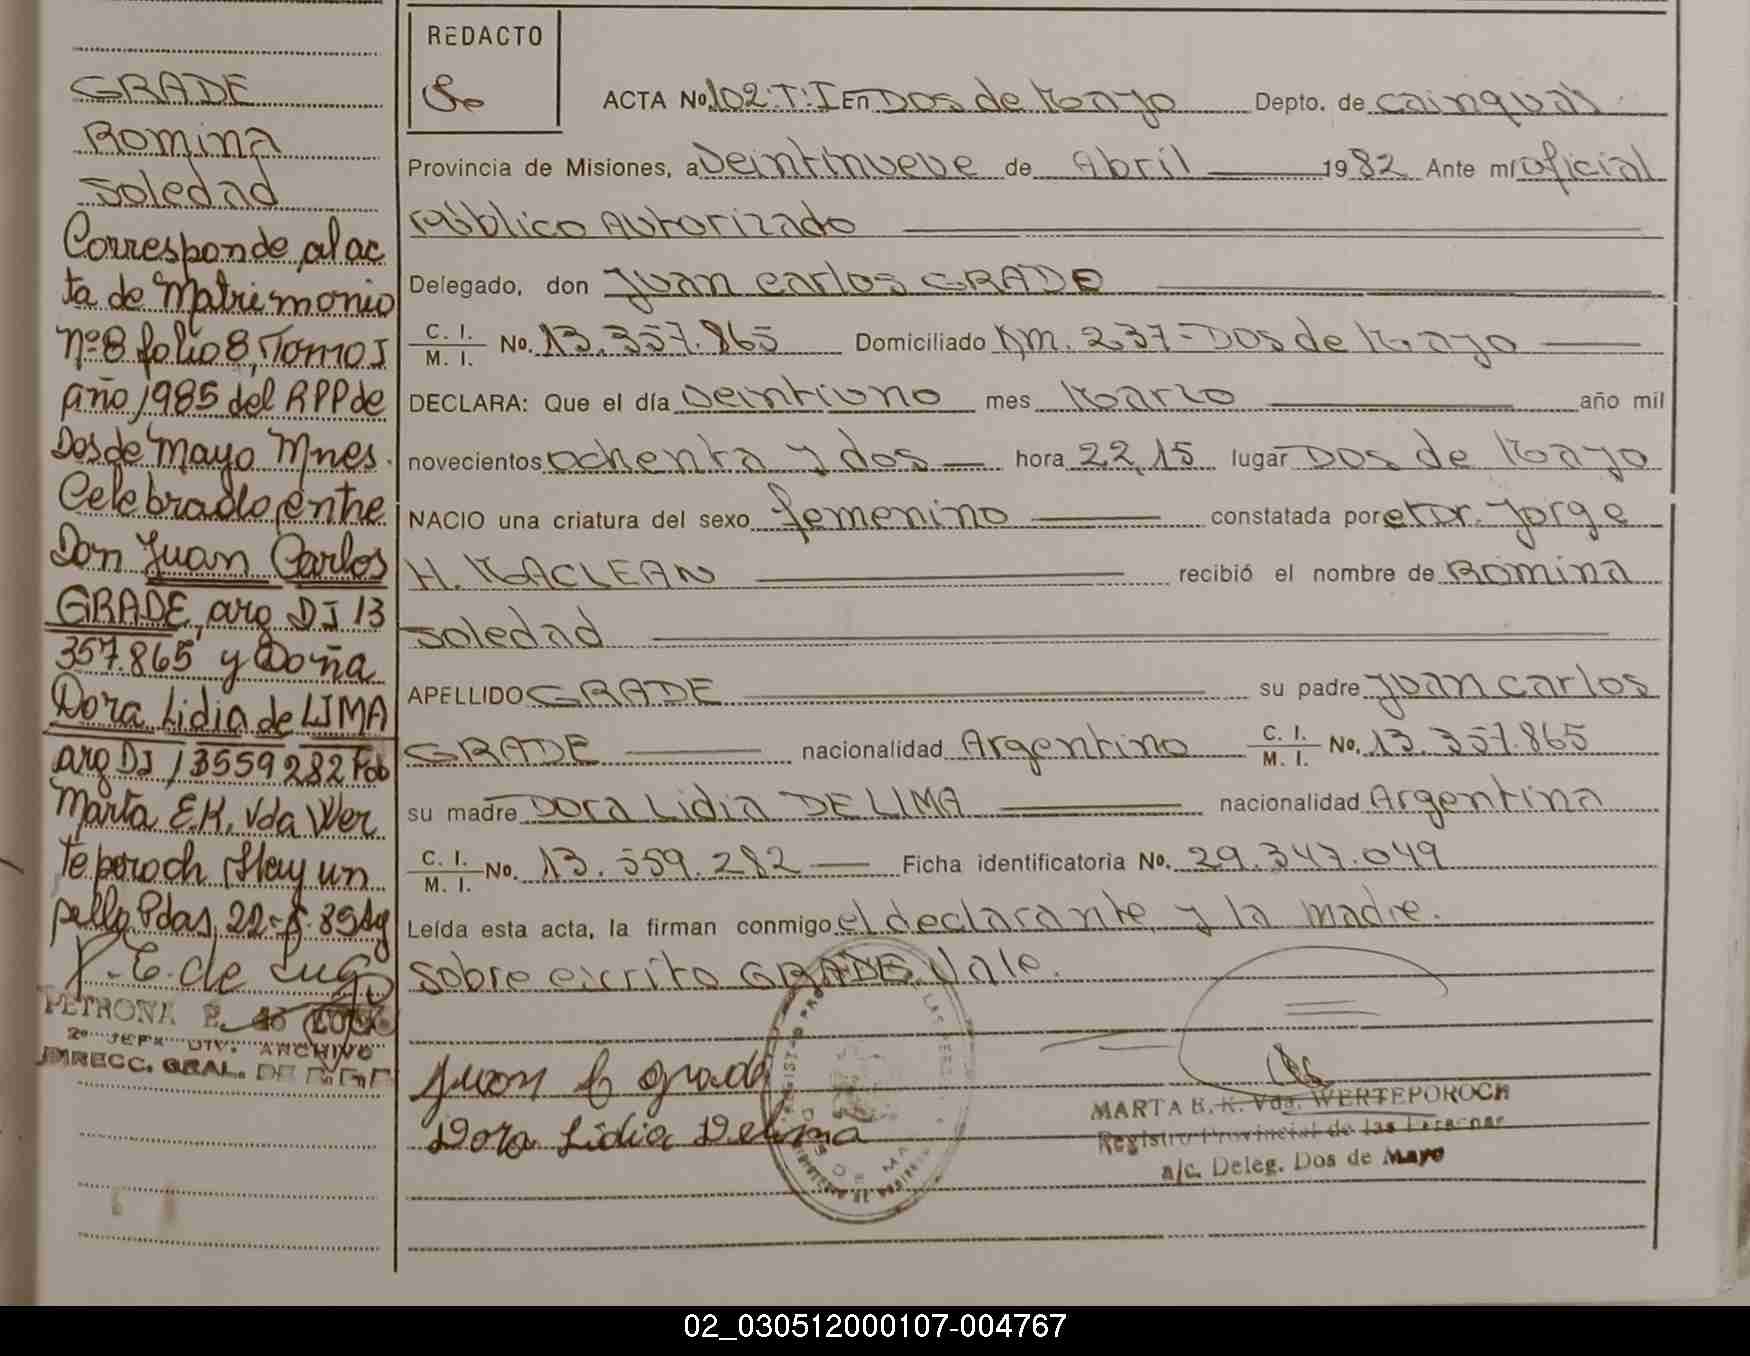 GRADE
Romina
Soledad
Corresponde al ac
ta de Matrimonio
nº8 folio 8, Tomo I
año 1985 del RPP de
Dos de Mayo Mnes.
Celebrado entre
Don Juan Carlos
GRADE, arg DI 13
357.865 y Doña
Dora Lidia de LIMA
arg DI 13559282 Fdo
Marta E.K. Vda Wer
teporoch Hay un
sello Pdas, 22-5-85
P. E. de Lugo
PETRONA E. de LUGO
2º JEFA DIV. ARCHIVO
DIRECC. GRAL. DE
REDACTO
ACTA No. 102.T:I En Dos de Mayo Depto. de Cainguás
Provincia de Misiones, a Veintinueve de Abril 1982 Ante mí oficial
Público Autorizado
Delegado, don Juan Carlos GRADE
C. I.
M. I. No. 13.357.865 Domiciliado Km. 237-Dos de Mayo
DECLARA: Que el día Veintiuno mes Marzo año mil
novecientos ochenta y dos hora 22,15 lugar Dos de Mayo
NACIO una criatura del sexo femenino constatada por el Dr. Jorge
H. MACLEAN recibió el nombre de Romina
Soledad
APELLIDO GRADE su padre Juan Carlos
GRADE nacionalidad Argentino C. I.
M. I. No. 13.357.865
su madre Dora Lidia DE LIMA nacionalidad Argentina
C. I.
M. I. No. 13.559.282 Ficha identificatoria No. 29.347.049
Leída esta acta, la firman conmigo el declarante y la madre.
Sobre escrito GRADE. Vale.
Juan C Grade
Dora Lidia Delima
DOS DE MAYO
MARTA E. K. Vda. WERTEPOROCH
Registro Provincial de las Personas
a/c. Deleg. Dos de Mayo
02_030512000107-004767